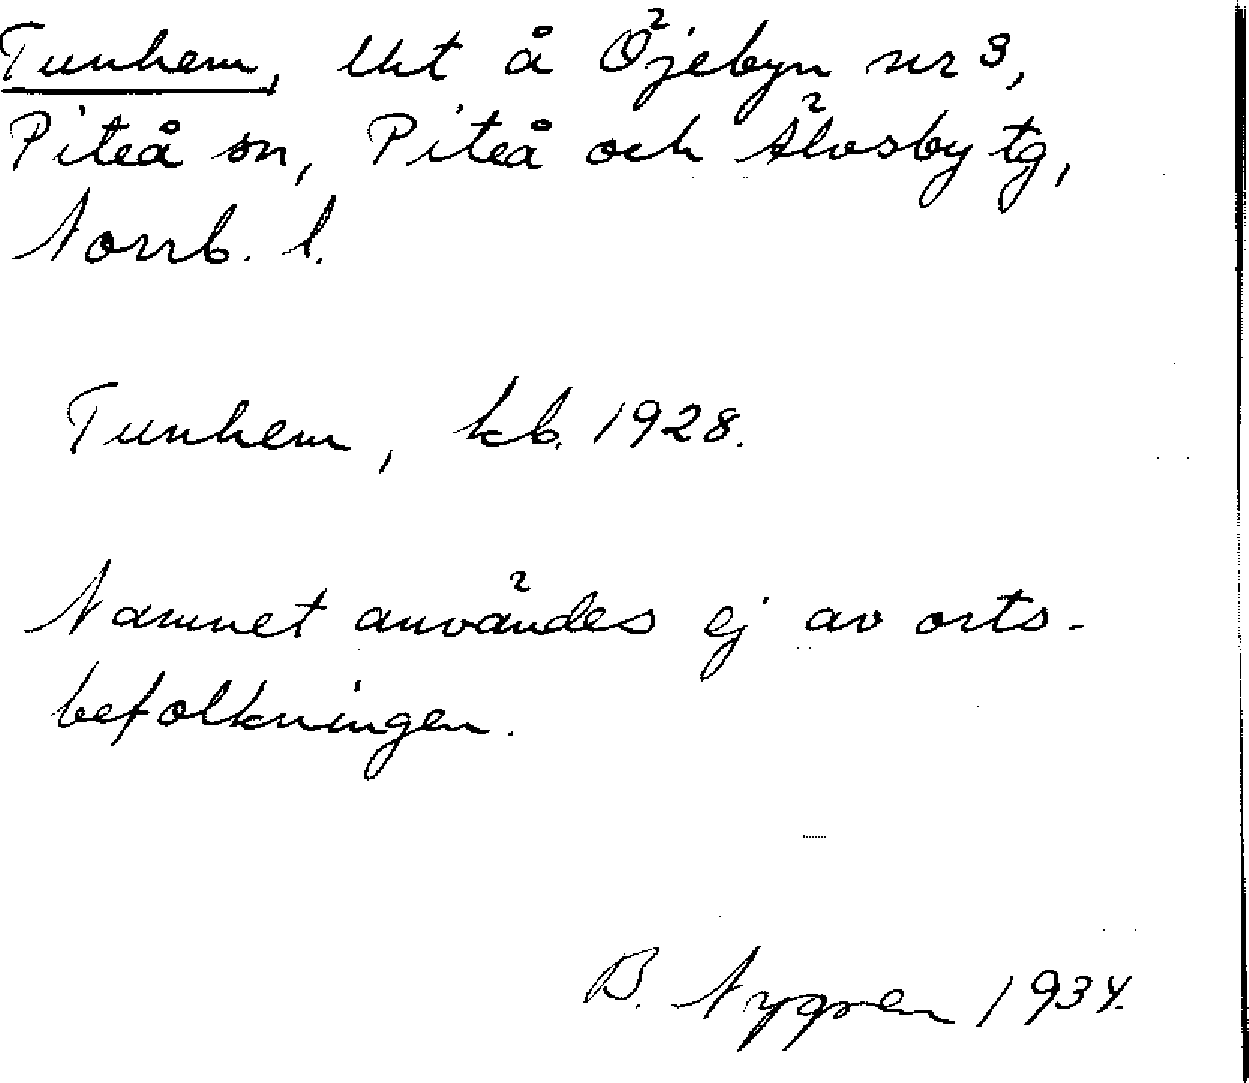 Tunhem, lht å Öjebyn nr 3,
Piteå sn, Piteå och Älvsby tg,
Norrb. l.
Tunhem, kb. 1928.
Namnet användes ej av orts-
befolkningen.
B. Nygren 1934.